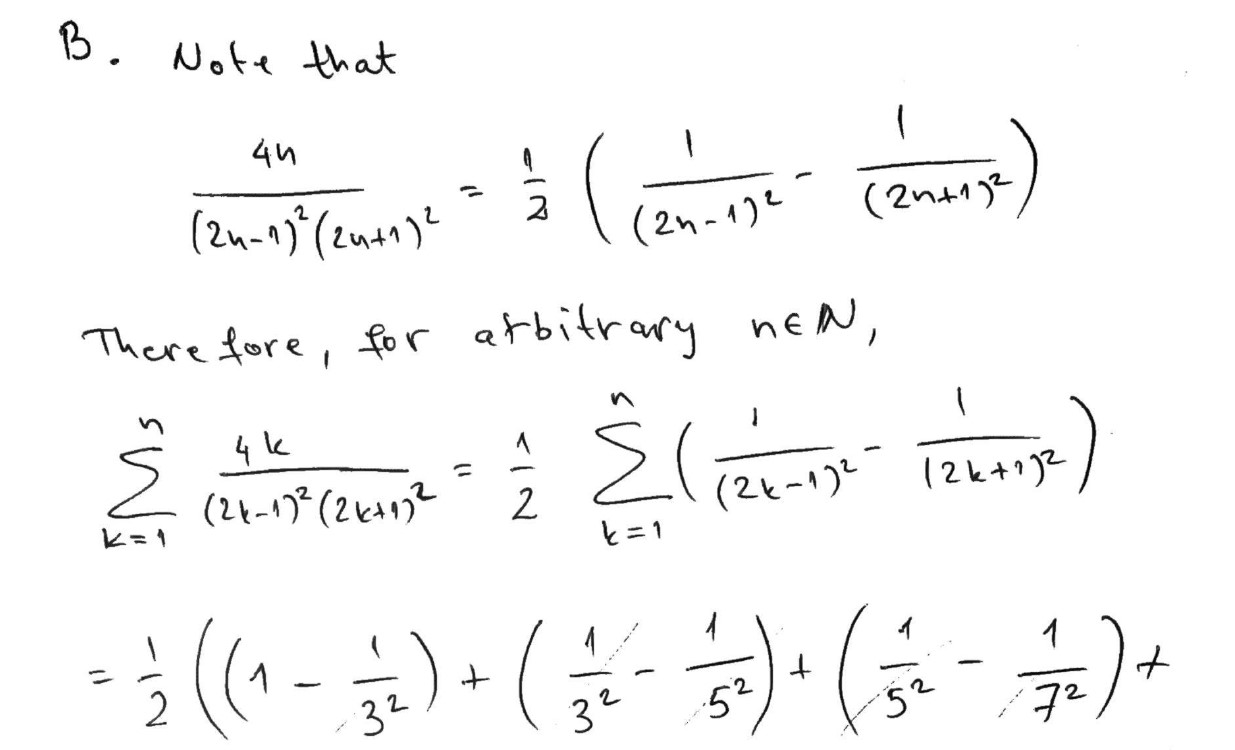 B. Note that
4n/((2n-1)²(2n+1)²) = 1/2 (1/(2n-1)² - 1/(2n+1)²)
Therefore, for arbitrary n∈ℕ,
∑_{k=1}^{n} 4k/((2k-1)²(2k+1)²) = 1/2 ∑_{k=1}^{n} (1/(2k-1)² - 1/(2k+1)²)
= 1/2 ((1 - 1/3²) + (1/3² - 1/5²) + (1/5² - 1/7²) +